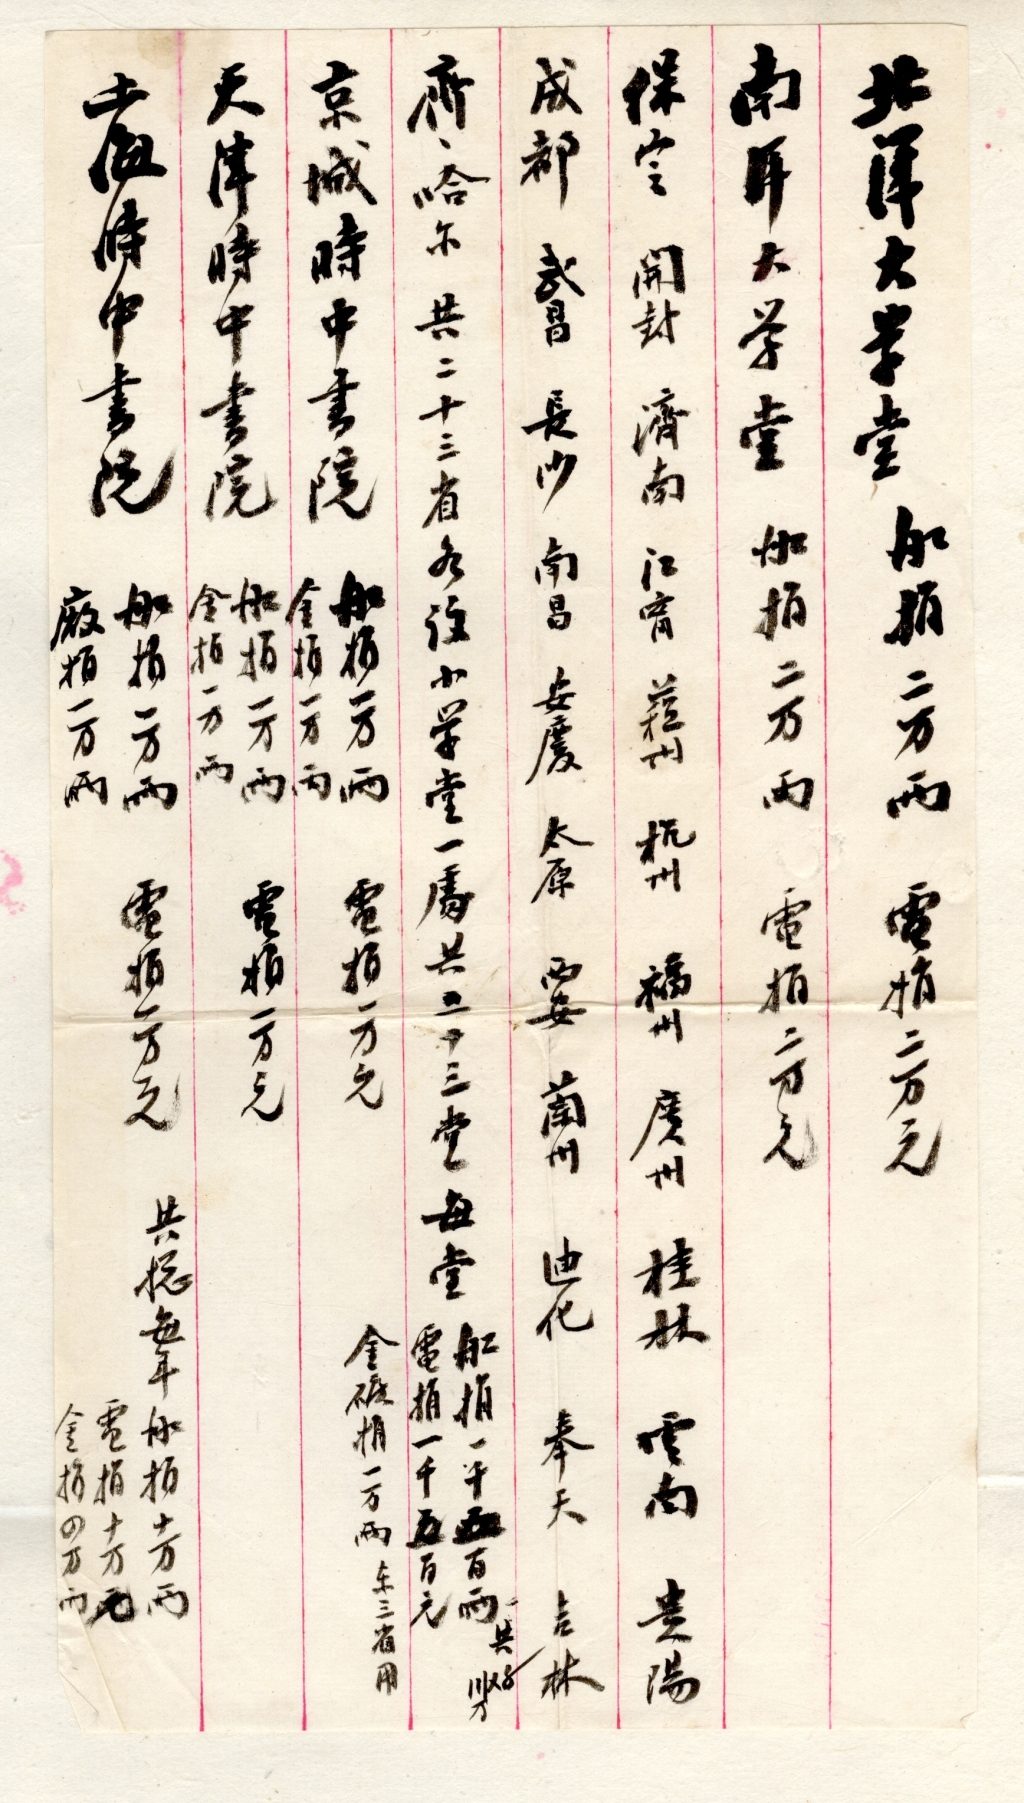 北洋大学堂 船捐二万两 電捐二万元
南洋大学堂 船捐二万两 電捐二万元
保定 開封 濟南 江甯 蘇州 杭州 福州 廣州 桂林 雲南 贵陽
成都 武昌 長沙 南昌 安慶 太原 西安 蘭州 迪化 奉天 吉林
齊〻哈尔 共二十三省各设小学堂一處共二十三堂每堂
船捐一千五百两
電捐一千五百元
一共
金礦捐一万两 东三省用
京城時中書院
船捐一万两 電捐一万元
金捐一万两
天津時中書院
船捐一万两 電捐一万元
金捐一万两
上海時中書院
船捐一万两 電捐一万元
廠捐一万两
共总每年
船捐十万两
電捐十万元
金捐四万两